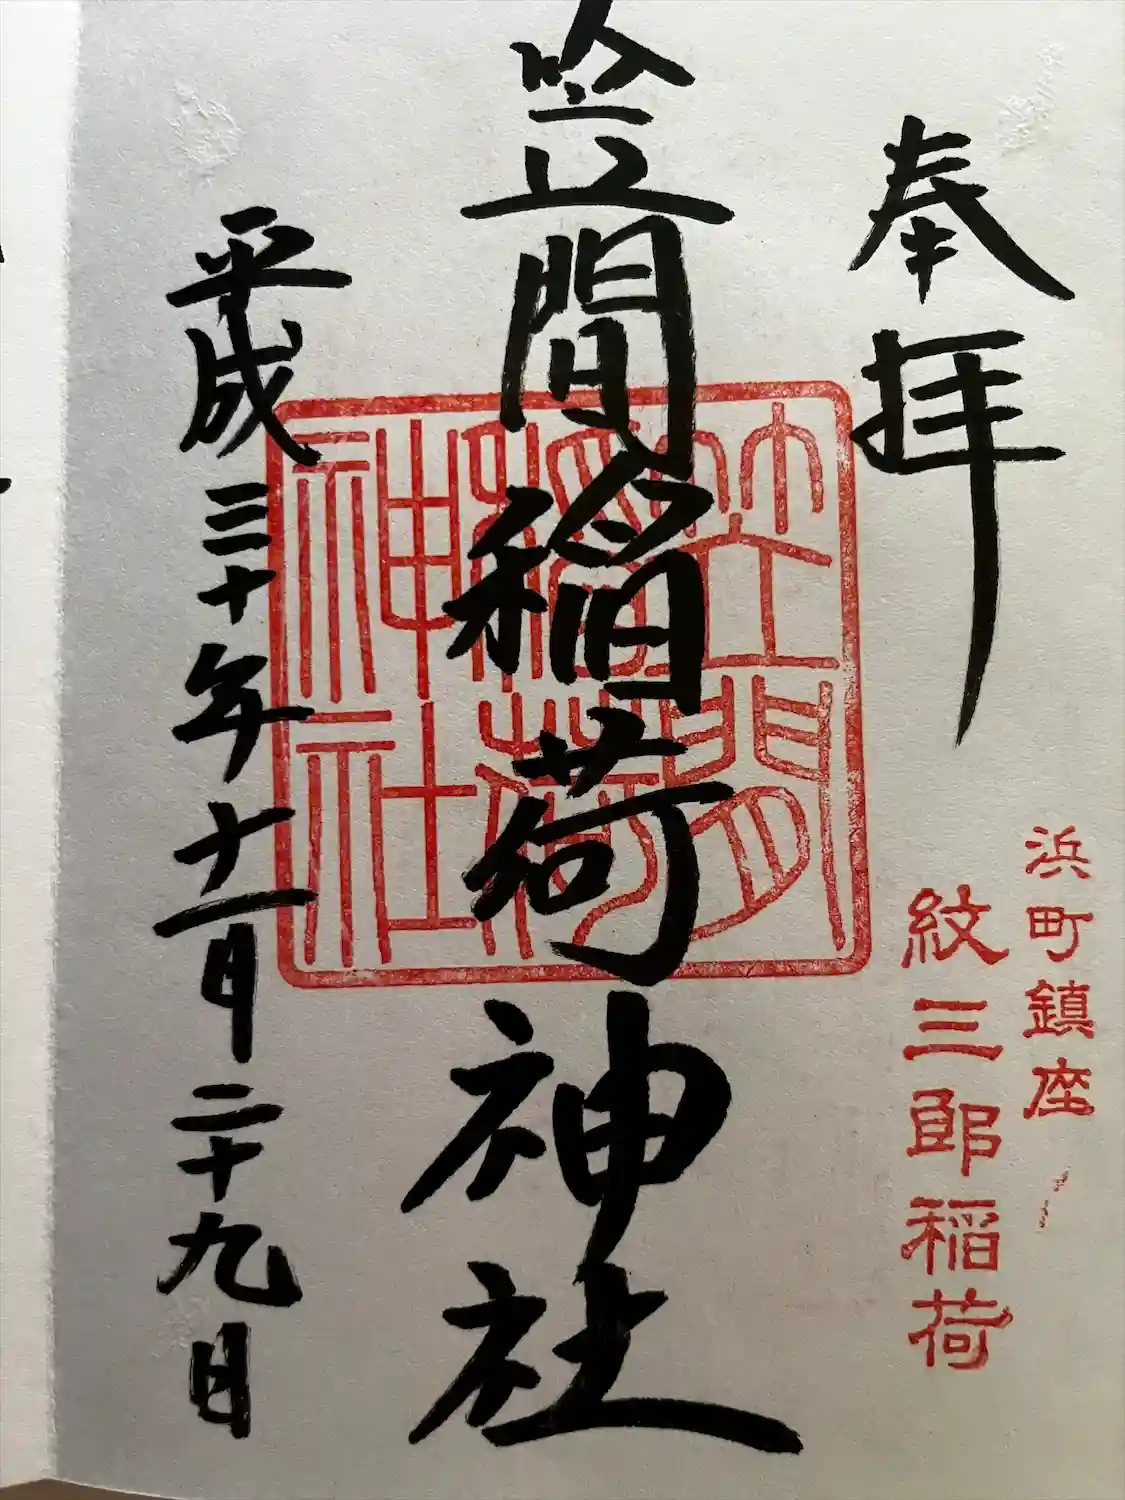 奉拝
浜町鎮座
紋三郎稲荷
笠間稲荷神社
笠間
稲荷
神社
平成三十年十一月二十九日